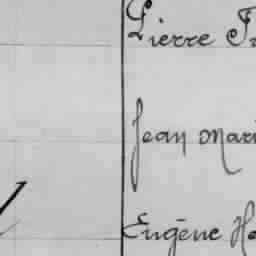 Pierre Fr
Jean Mari
Eugène Ha